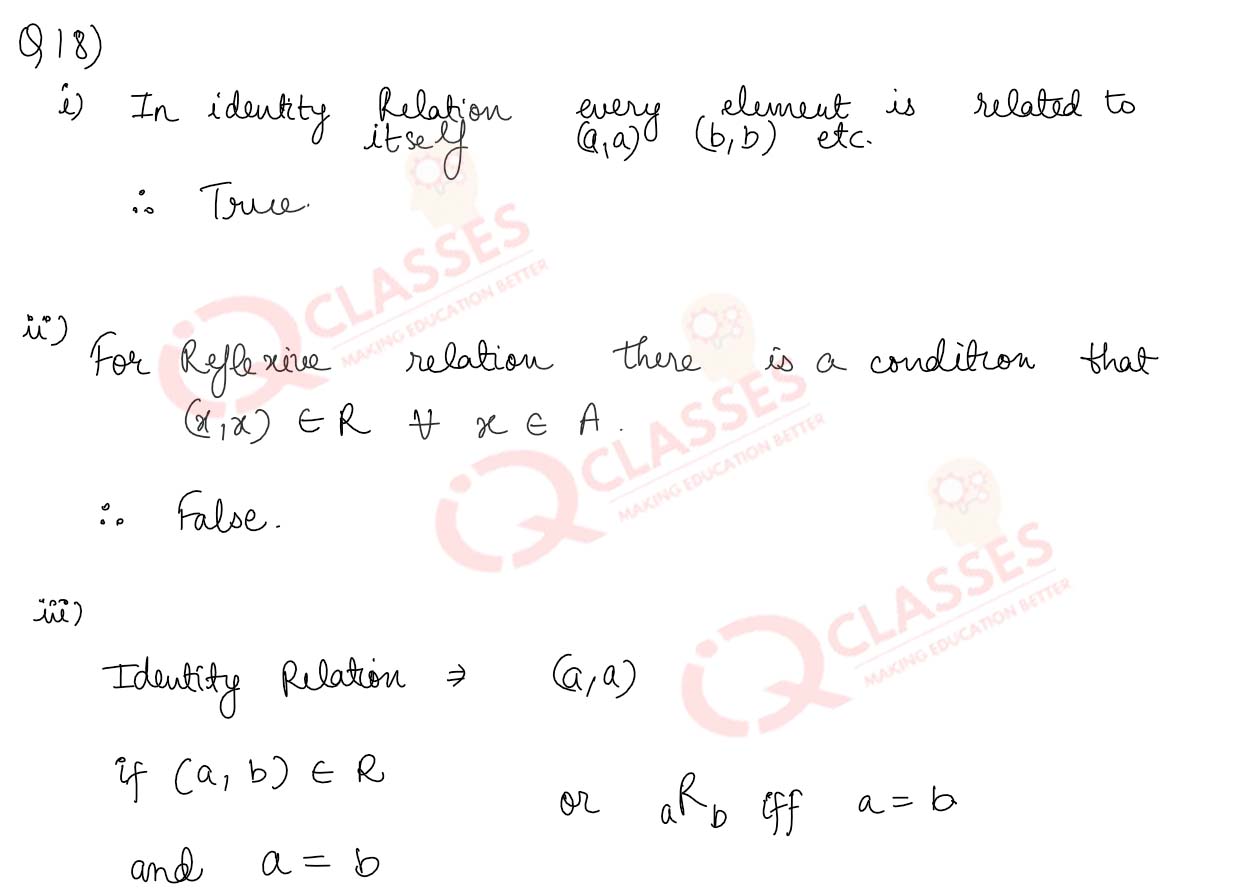 Q 18)
i) In identity Relation every element is related to
itself (a,a) (b,b) etc.
∴ True.
ii) For Reflexive relation there is a condition that
(x,x) ∈ R ∀ x ∈ A.
∴ False.
iii)
Identity Relation ⇒ (a,a)
if (a, b) ∈ R
or aRb iff a = b
and a = b
iQ CLASSES
MAKING EDUCATION BETTER
iQ CLASSES
MAKING EDUCATION BETTER
iQ CLASSES
MAKING EDUCATION BETTER